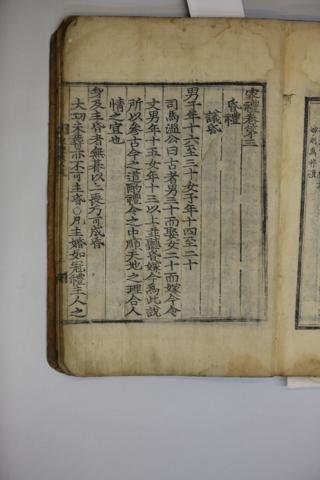 家禮卷第三
昏禮
議昏
男子年十六至三十女子年十四至二十
司馬溫公曰古者男三十而娶女二十而嫁今令
文男年十五女年十三以上並聽昏嫁今爲此說
所以參古今之道酌禮令之中順天地之理合人
情之宜也
身及主昏者無朞以上喪乃可成昏
大功未葬亦不可主昏○凡主婚如冠禮主人之